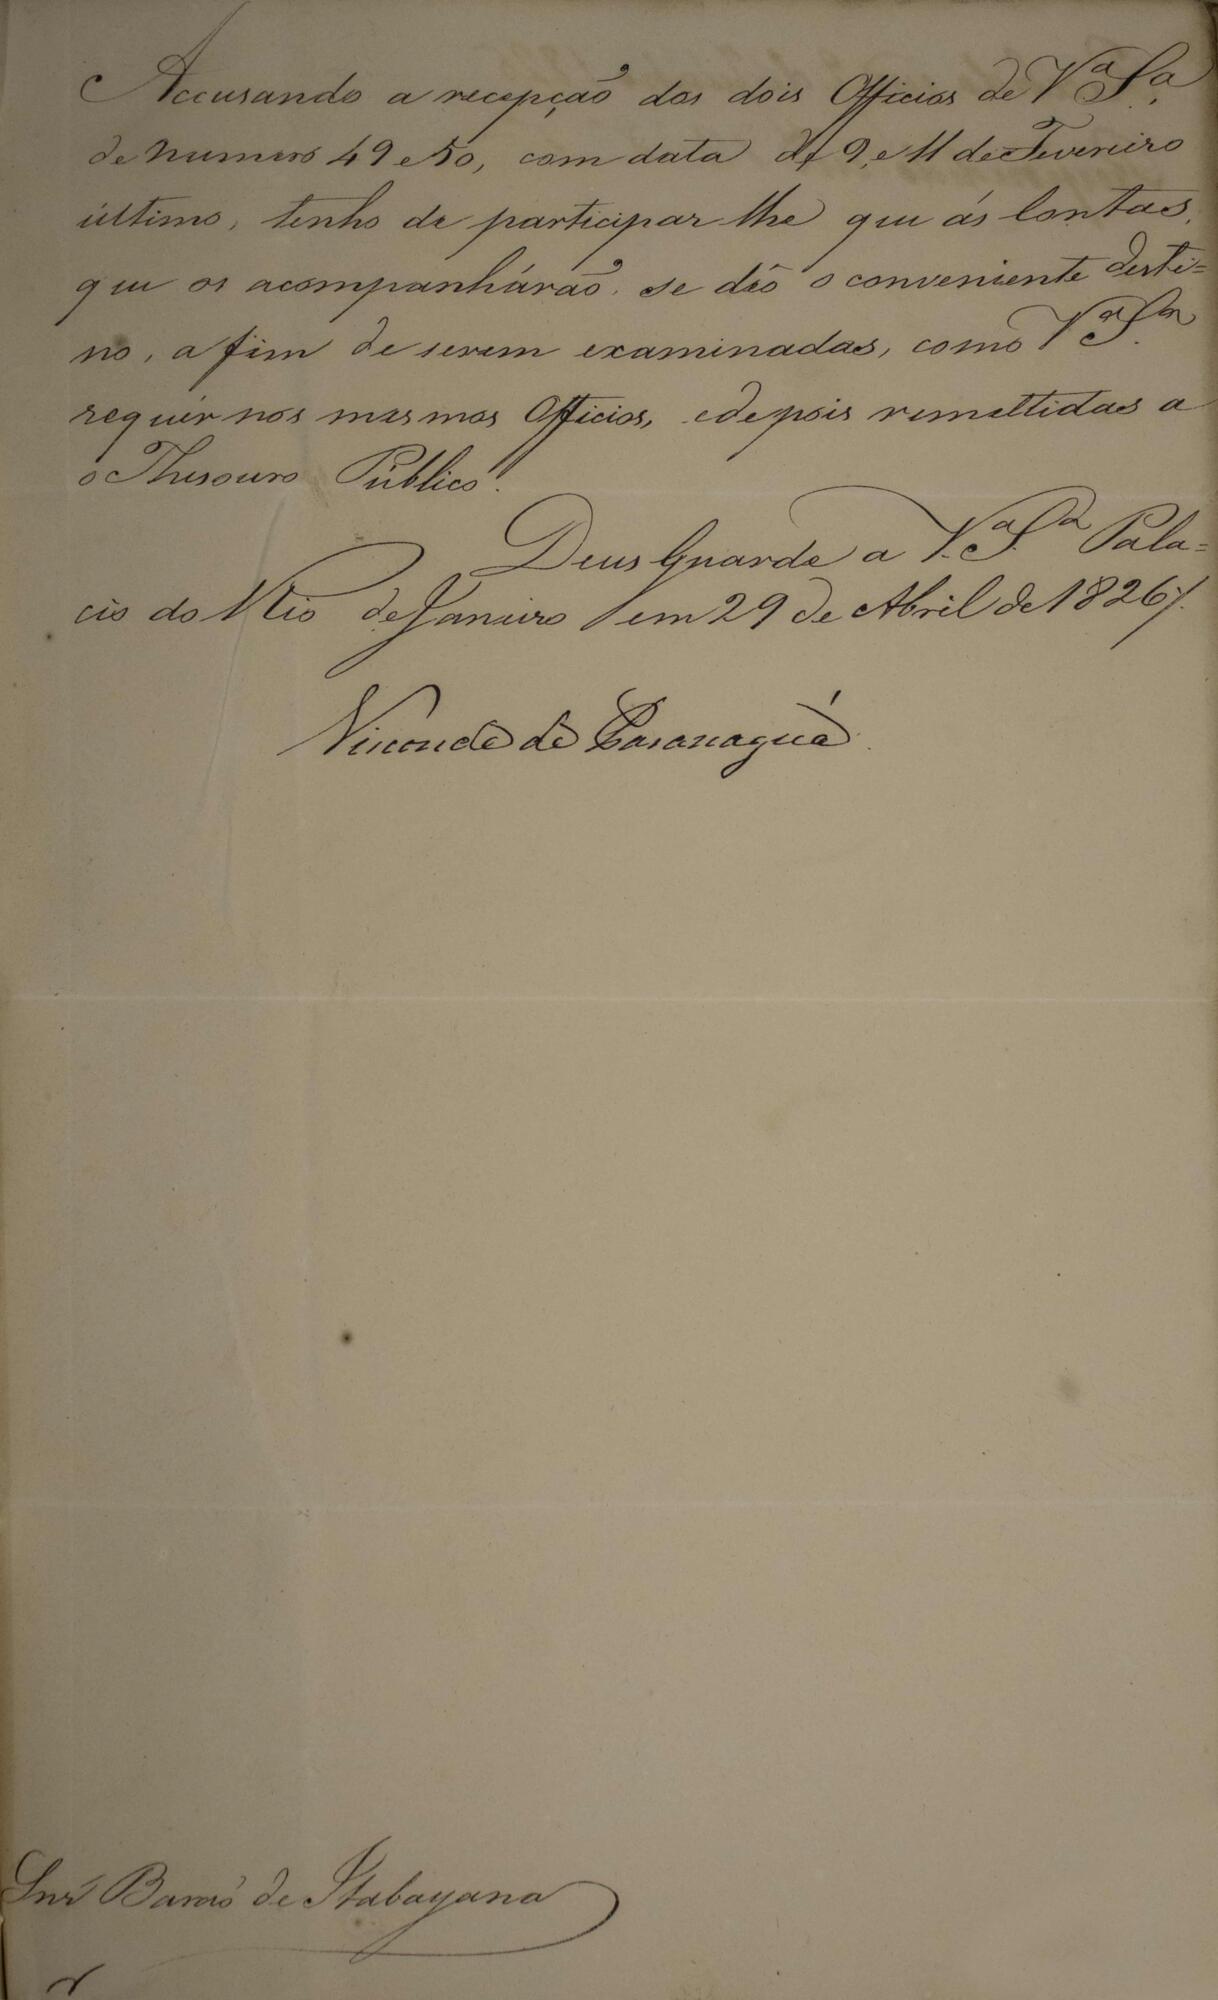 Accusando a recepção dos dois Officios de V.ª S.ª
de numero 49 e 50, com data de 9, e 11 de Fevereiro
último, tenho de participar lhe que ás Contas,
que os acompanhárão, se dêo o conveniente desti=
no, a fim de serem examinadas, como V.ª S.ª
requér nos mesmos Officios, e depois remettidas a
o Thesouro Público.
Deus Guarde a V.ª S.ª Pala=
cio do Rio de Janeiro em 29 de Abril de 1826
Visconde de Paranaguá
Snr Barão de Itabayana